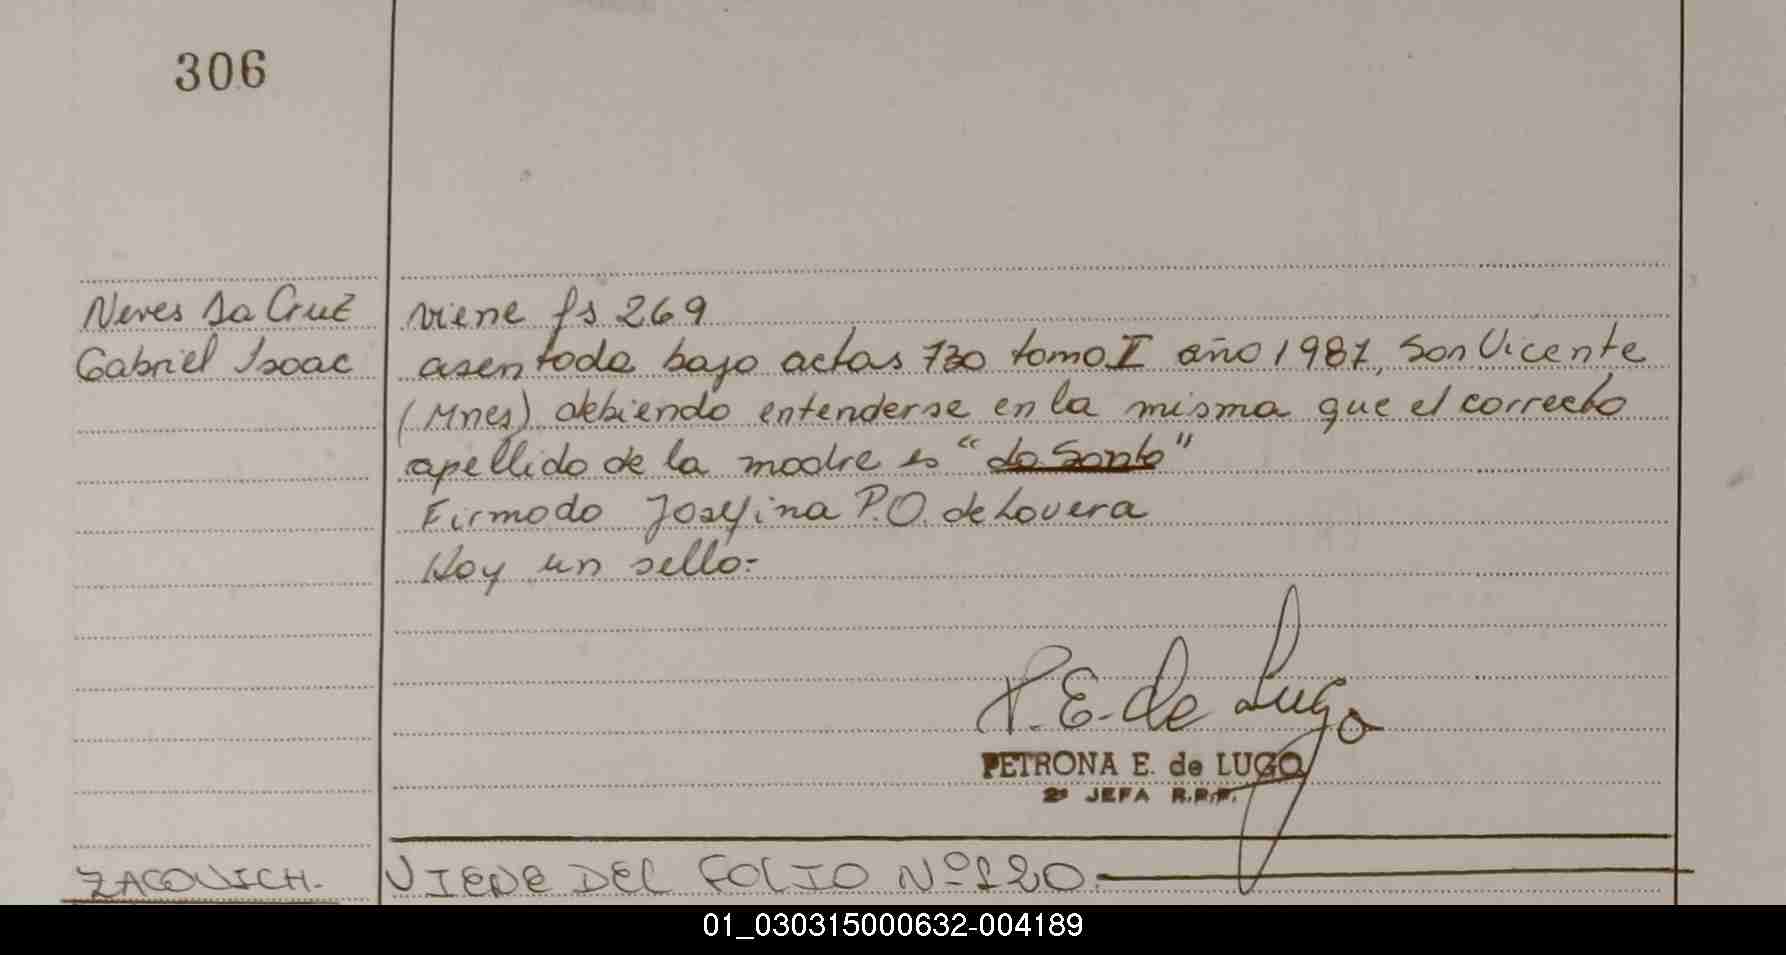 306
Neves da Cruz
Gabriel Isaac
viene fs 269
asentada bajo actas 730 tomo I año 1987, San Vicente
(Mnes) debiendo entenderse en la misma que el correcto
apellido de la madre es "do Santo"
Firmado Josefina P.O. de Lovera
Hay un sello.-
P.E. de Lugo
PETRONA E. de LUGO
2ª JEFA R.P.P.
ZACOVICH.
VIENE DEL FOLIO Nº 120.
01_030315000632-004189